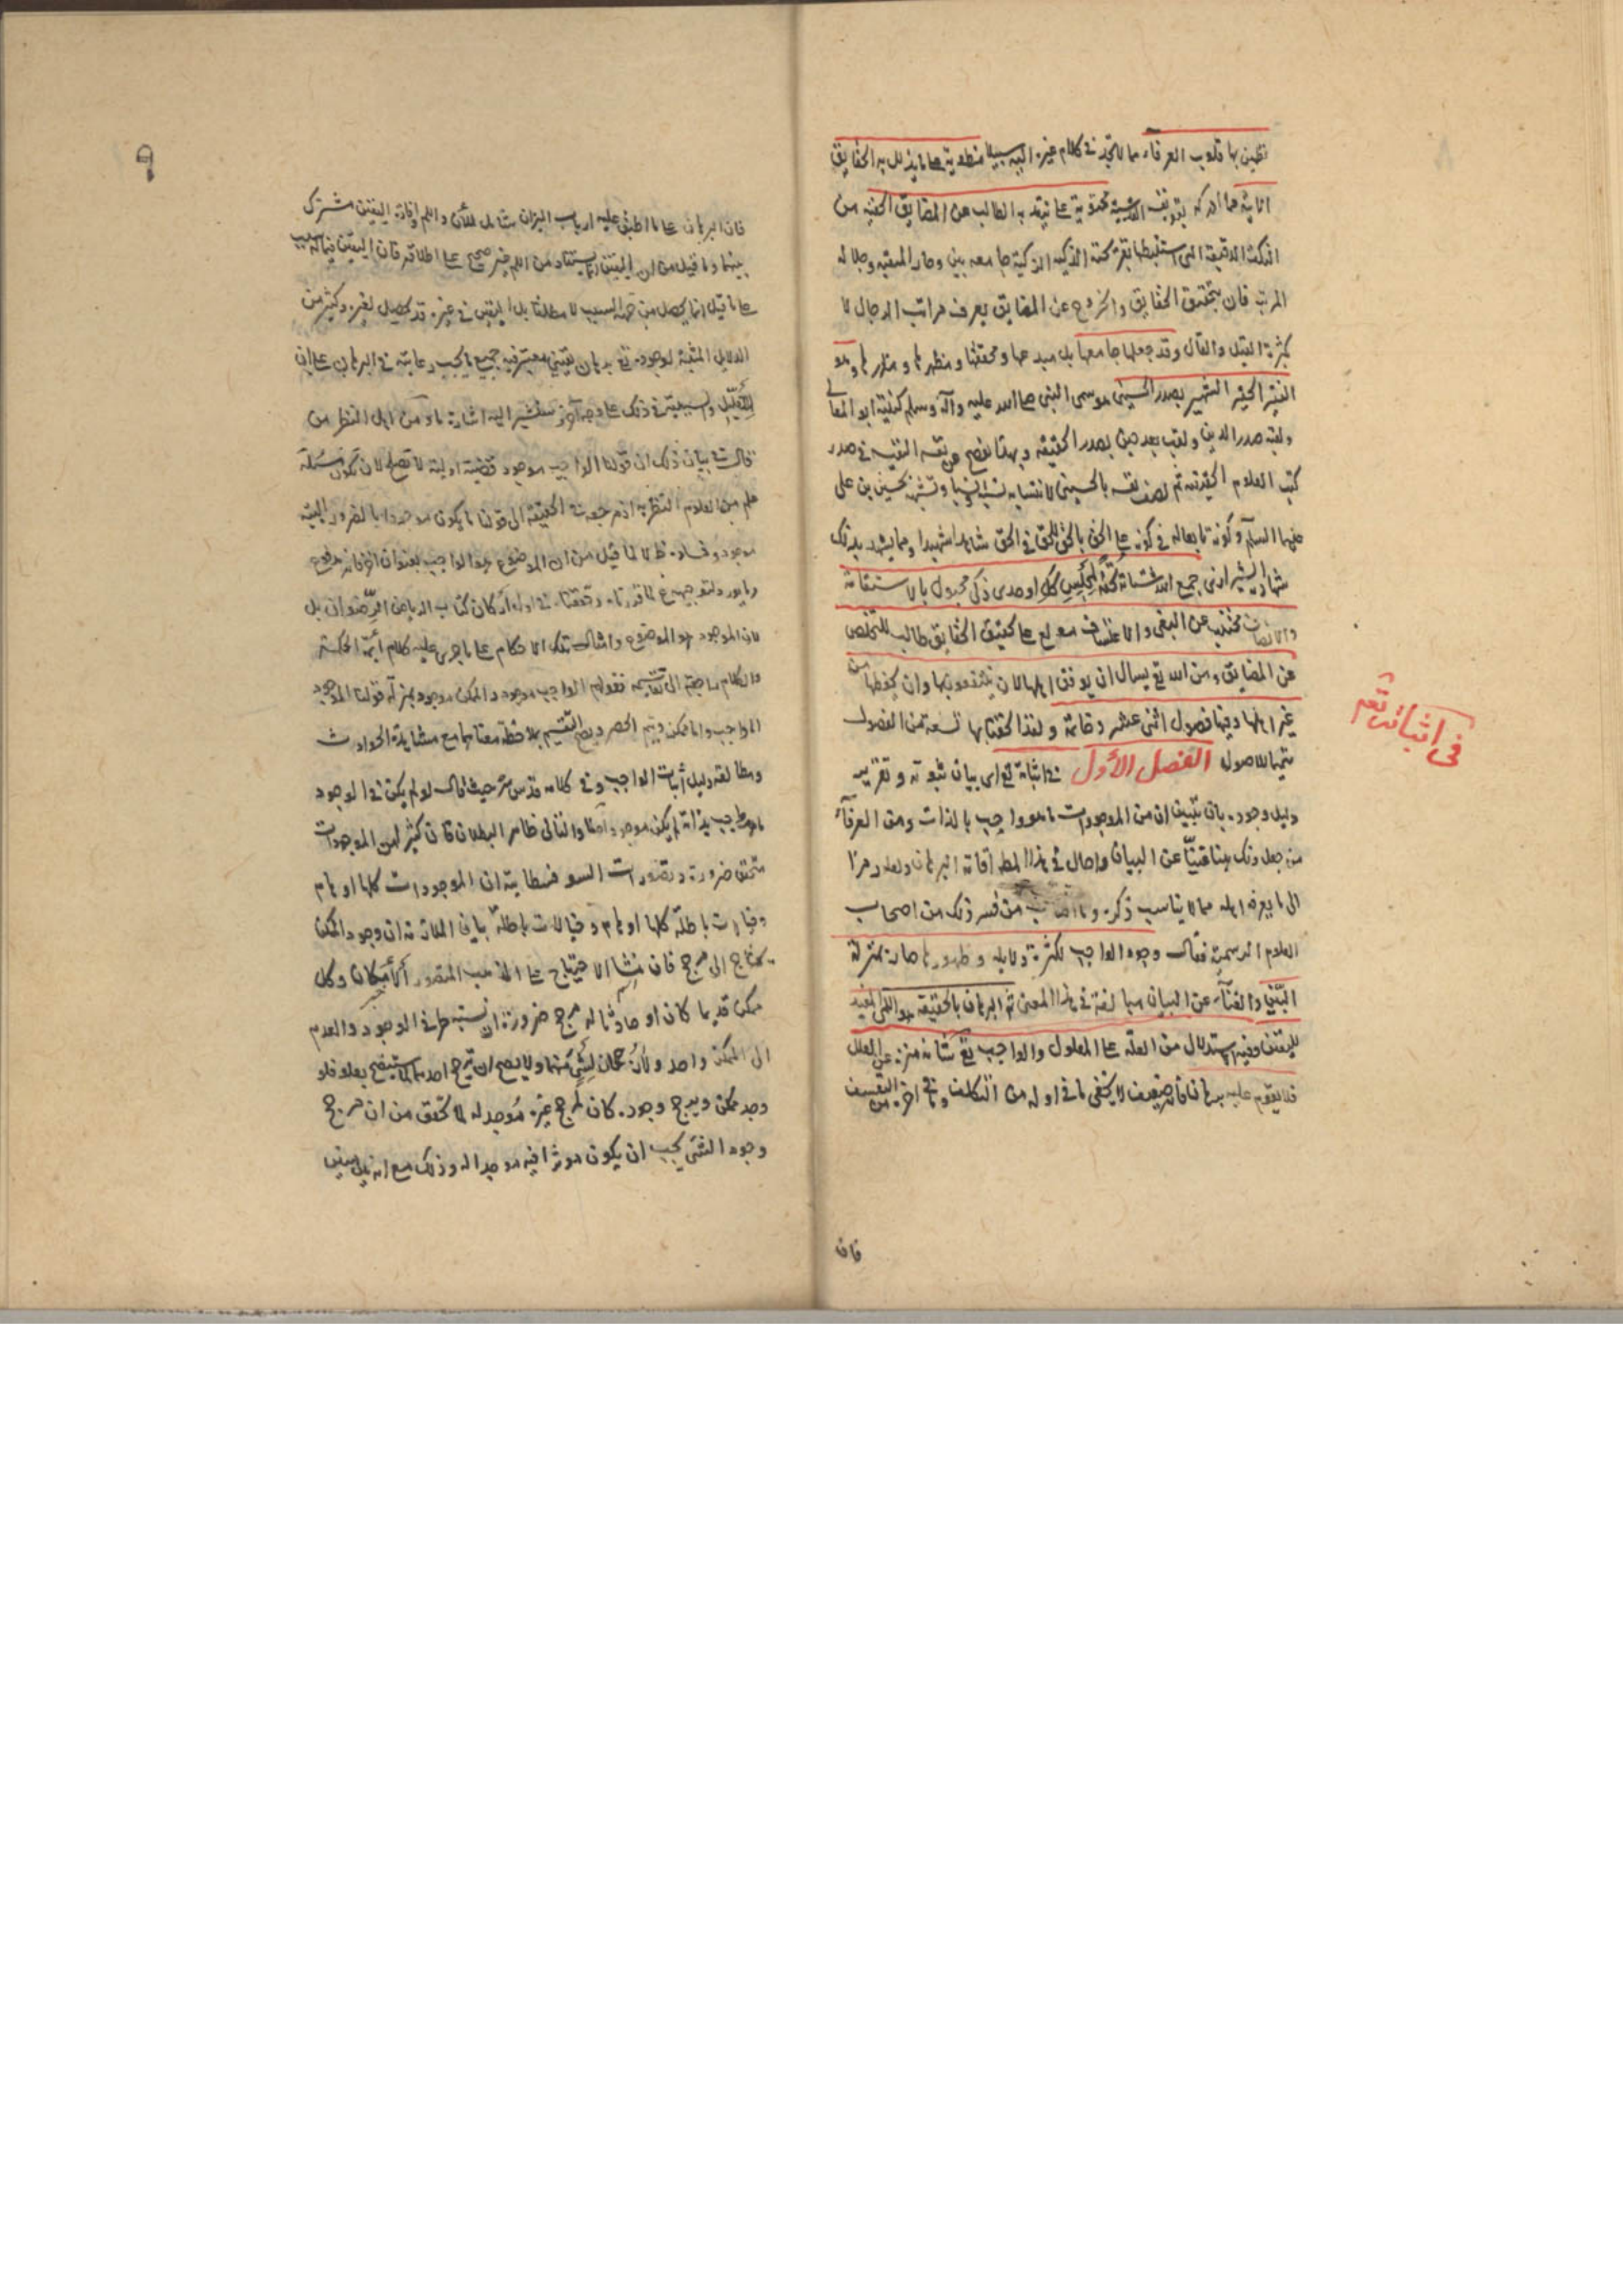 تطمئن بها قلوب العرفاء مما لا تجد في كلام غيره اليه سبيلا منطوية على ما يذلل به الحقايق
مما ادركه محتوية على ما ينقد به الطالب عن المضايق الخفية من
النكت الدقيقة التي استنبطها بقريحته الذكية الزكية جامعه بين
المرتب فان بتحقيق الحقايق والخروج عن المضايق يعرف مراتب الرجال لا
بكثرة القيل والقال وقد جعلها جامعها بل مبدعها ومحققها ومظهرها ومقررها وهو
الفقير الحقير الشهير بصدر الحسيني موسى النبي صلى الله عليه وآله وسلم كنيته ابو المعالي
ولقبه صدر الدين ولقب بعد حين بصدر الحقيقه وبهذا نفسه النفيسه في صدر
كتب العلوم الحقيقيه ثم نفسه بالحسيني لانتسابه بحسين بن علي
عليهما السلام وكونه تابعا له في كونه على الحق بالحق للحق في الحق شاهدا شهيدا ومما يشهد بذلك
كل اوحدي ذكي مجبول بالاستقامة
والانصاف مجتنب عن البغي والاعتساف مولع على تحقيق الحقايق طالب للتخلص
عن المضايق ومن الله تع يسأل ان يوفق اهلها لان ينتفعون بها وان يحفظها من
غير اهلها وفيها فصول اثنى عشر وخاتمة ولقد الحقنا بها تسعة من الفصول
تتميما للاصول الفصل الأول في اثباته تع اي بيان ثبوته وتقرير
دليل وجوده بان تبين ان من الموجودات ما هو واجب بالذات ومن العرفآء
من جعل ذلك بينا غنيّا عن البيان واحال في هذا المط اقامة البرهان ولعله رمز
الى ما يعرفه اهله مما لا يناسب ذكره وما اصاب من فسر ذلك من اصحاب
العلوم الرسمية فقال وجود الواجب لكثرة دلايله وظهورها صار بمنزلة
البيّن والغنآء عن البيان مبالغة في هذا المعنى ثم البرهان بالحقيقه هو اللمي المفيد
لليقين وفيه استدلال من العلة على المعلول والواجب تع شانه منزه عن العلل
فلا يقوم عليه برهان ضعيف لا يخفى ما في اوله من التكلف وفي اخره من التعسف
فان
في اثباته تعم
٩
فان البرهان على ما اطبق عليه ارباب الميزان شامل للأن واللم وافادة اليقين مشترك
بينهما وما قيل من ان اليقين انما يستفاد من اللم غير صحيح على اطلاقه فان اليقين فيما له سبب
على ما قيل انما يحصل من جهة السبب لا مطلقا بل اليقين في غيره قد يحصل بغيره وكثير من
الدلايل المثبتة لوجوده تع برهان يقيني معتبر فيه جميع ما يجب رعايته في البرهان على ان
في ذلك على وجه آخر سنشير اليه اشارة ما ومن اهل النظر من
قال في بيان ذلك ان قولنا الواجب موجود قضية اولية لا تصلح لان تكون مسئلة
علم من العلوم النظرية اذ مرجعه في الحقيقة الى قولنا ما يكون موجودا بالضرورة البتة
موجود وفساده ظ لا لما قيل من ان الموضوع هو الواجب بعنوان اخر فانه مدفوع
لما قررناه وحققناه في اوايل اركان كتاب الرياض الرضوان بل
لان الموجود هو الموضوع وامثال تلك الاحكام على ما جرى عليه كلام أئمة الحكمة
والكلام راجع الى تقسيمه فقولهم الواجب موجود والممكن موجود بمنزلة قولنا الموجود
اما واجب واما ممكن ويتم الحصر ويصح التقسيم بملاحظة معناهما مع مشاهدة الحوادث
ومطالعة دليل أثبات الواجب وفي كلامه قدس سره حيث قال لو لم يكن في الوجود
واجب بذاته لم يكن موجود أصلا والتالي ظاهر البطلان فان كثير من الموجودات
متحقق ضرورة وتصورات السوفسطايية ان الموجودات كلها اوهام
وخيالات باطلة كلها اوهام وخيالات باطلة بيان الملازمة ان وجود الممكن
يحتاج الى مرجح فان منشأ الاحتياج على المذهب المنصور الأمكان وكل
ممكن قديما كان او حادثا له مرجح ضرورة ان نسبة طرفي الوجود والعدم
الى الممكن واحد ولا رجحان لشئ منهما ولا يصح ان يترجح احدهما فلو
وجد ممكن ويرجح وجوده كان لمرجح غيره مُوجد له لما تحقق من ان مرجح
وجود الشئ يجب ان يكون موثرا فيه موجدا له وذلك مع انه